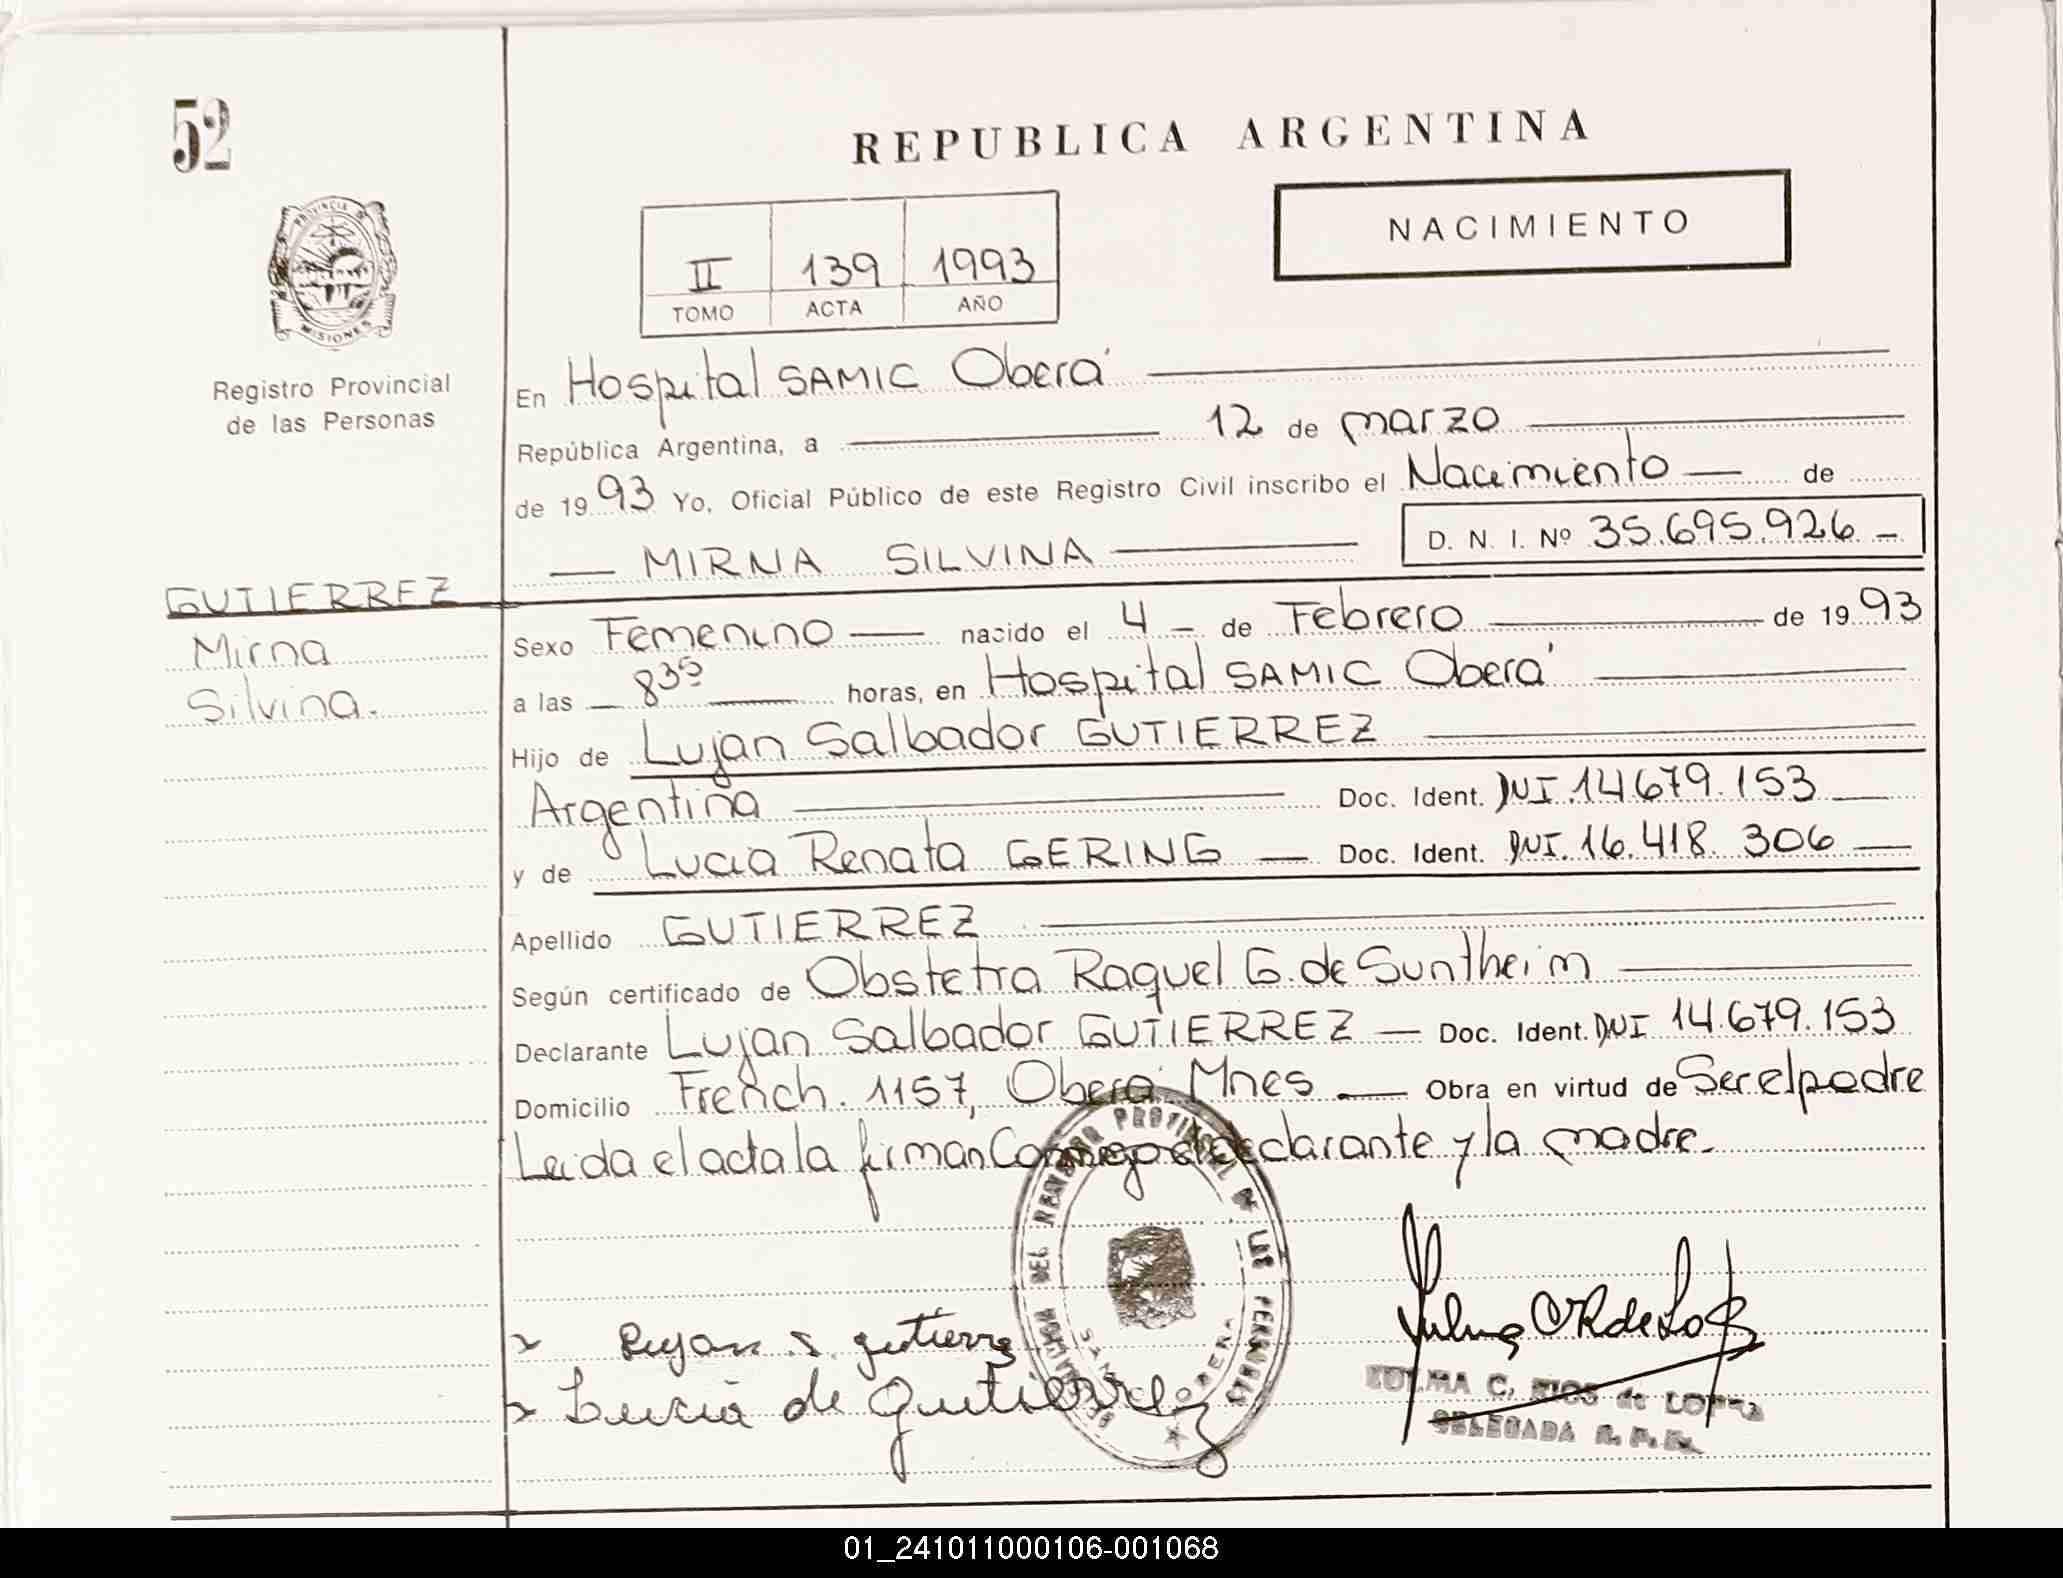 52
REPUBLICA ARGENTINA
NACIMIENTO
PROVINCIA DE MISIONES
II 139 1993
TOMO ACTA AÑO
Registro Provincial
de las Personas
En Hospital SAMIC Oberá
República Argentina, a 12 de marzo
de 1993 Yo, Oficial Público de este Registro Civil inscribo el Nacimiento de
MIRNA SILVINA D. N. I. Nº 35.695.926
GUTIERREZ
Mirna
Silvina.
Sexo Femenino nacido el 4 de Febrero de 1993
a las 8 35 horas, en Hospital SAMIC Oberá
Hijo de Lujan Salbador GUTIERREZ
Argentina Doc. Ident. DNI.14679.153
y de Lucia Renata GERING Doc. Ident. DNI.16.418.306
Apellido GUTIERREZ
Según certificado de Obstetra Raquel G. de Suntheim
Declarante Lujan Salbador GUTIERREZ Doc. Ident. DNI 14.679.153
Domicilio French. 1157, Oberá Mnes Obra en virtud de Ser el padre
Leida el acta la firman Conmigo el declarante y la madre.
DEL REGISTRO PROVINCIAL DE LAS PERSONAS
Lujan S. gutierrez
Lucia de Gutierrez
ZULMA C. RIOS de LOPEZ
DELEGADA R. P. P.
01_241011000106-001068